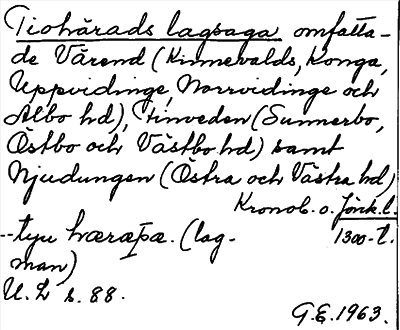 Tiohärads lagsaga omfatta-
de Värend (Kinnevalds, Konga,
Uppvidinge, Norrvidinge och
Albo hd), Finveden (Sunnerbo,
Östbo och Västbo hd) samt
Njudungen (Östra och Västra hd)
Kronob. o. Jönk.l.
--tiyu hæræþæ. (lag- 1300-t.
man)
U. L s. 88.
G.E. 1963.